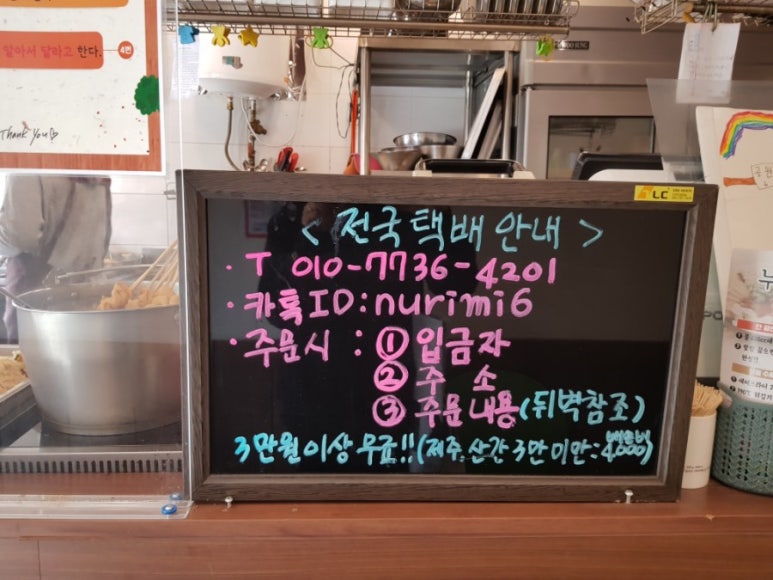 알아서 달라고 한다.
4번
Thank You♡
LC
< 전국택배 안내 >
· T 010-7736-4201
· 카톡ID:nurimi6
· 주문시 : ① 입금자
② 주 소
③ 주문내용(뒤벽참조)
3만원이상 무료!!(제주, 산간 3만미만: 배송비 4,000)